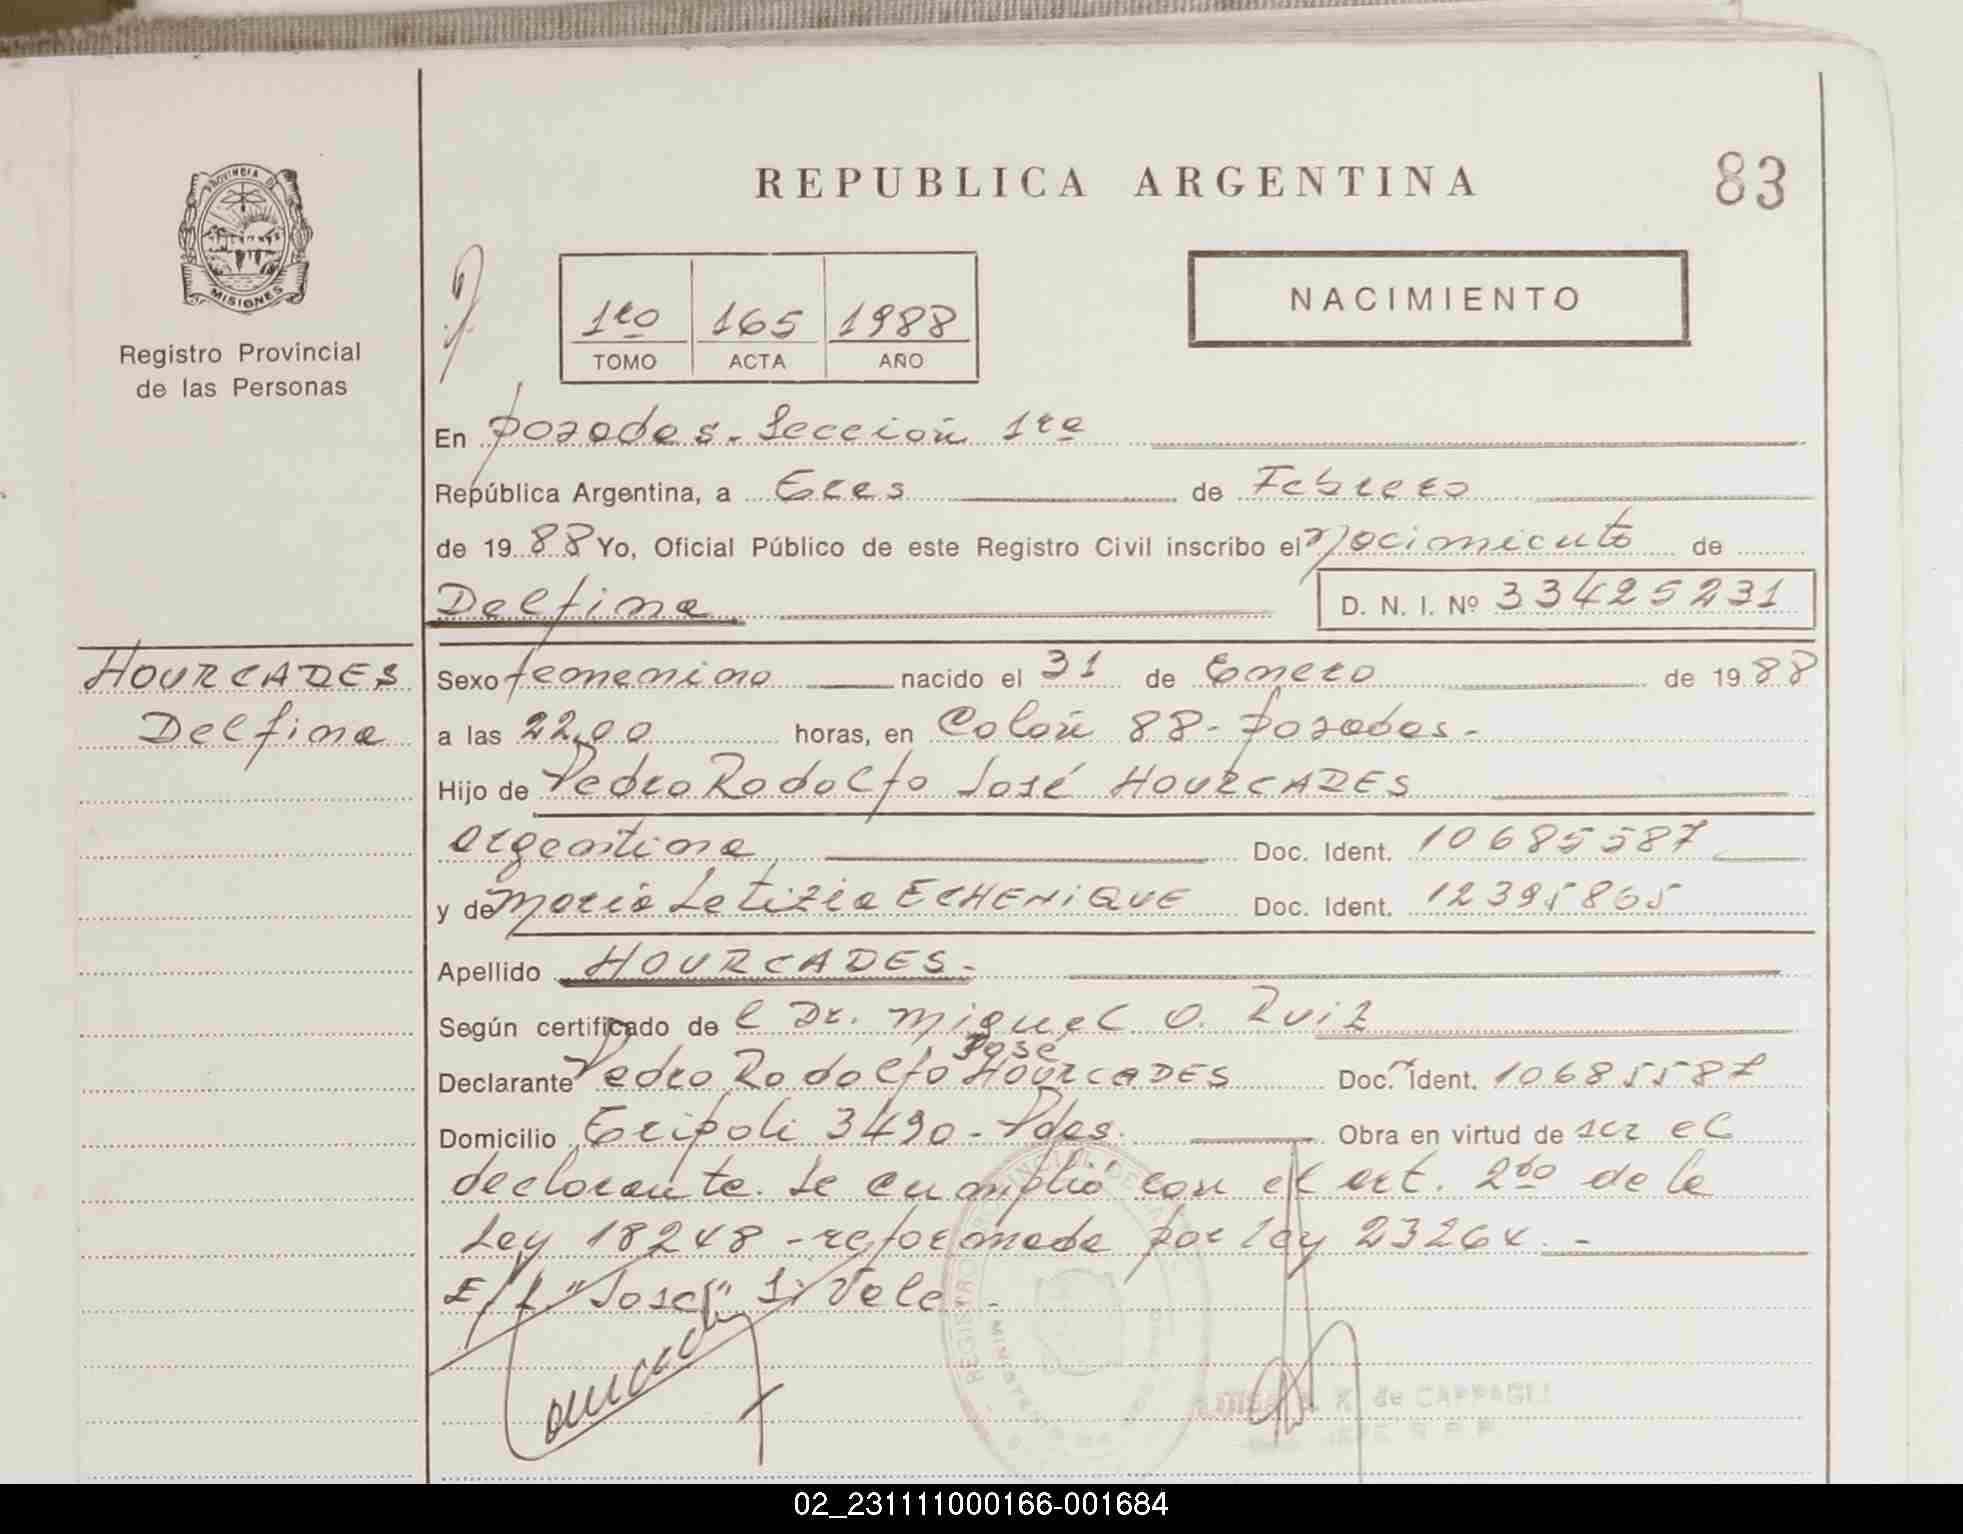 REPUBLICA ARGENTINA
83
PROVINCIA DE
MISIONES
Registro Provincial
de las Personas
1ro 165 1988
TOMO ACTA AÑO
NACIMIENTO
En Posadas - Sección 1ra
República Argentina, a tres de Febrero
de 1988 Yo, Oficial Público de este Registro Civil inscribo el Nacimiento de
Delfina D. N. I. Nº 33425231
HOURCADES
Delfina
Sexo femenino nacido el 31 de Enero de 1988
a las 22,00 horas, en Colón 88 - Posadas -
Hijo de Pedro Rodolfo José HOURCADES
argentina Doc. Ident. 10685587
y de María Letizia ECHENIQUE Doc. Ident. 12395865
Apellido HOURCADES.-
Según certificado de l Dr. Miguel O. Ruiz
José
Declarante Pedro Rodolfo HOURCADES Doc. Ident. 10685587
Domicilio Tripoli 3490 - Pdas. Obra en virtud de ser el
declarante. Se cumplió con el art. 2do de la
Ley 18248 - reformada por ley 23264.-
E/L "José" Si Vale -
de CAPPAGLI
02_231111000166-001684